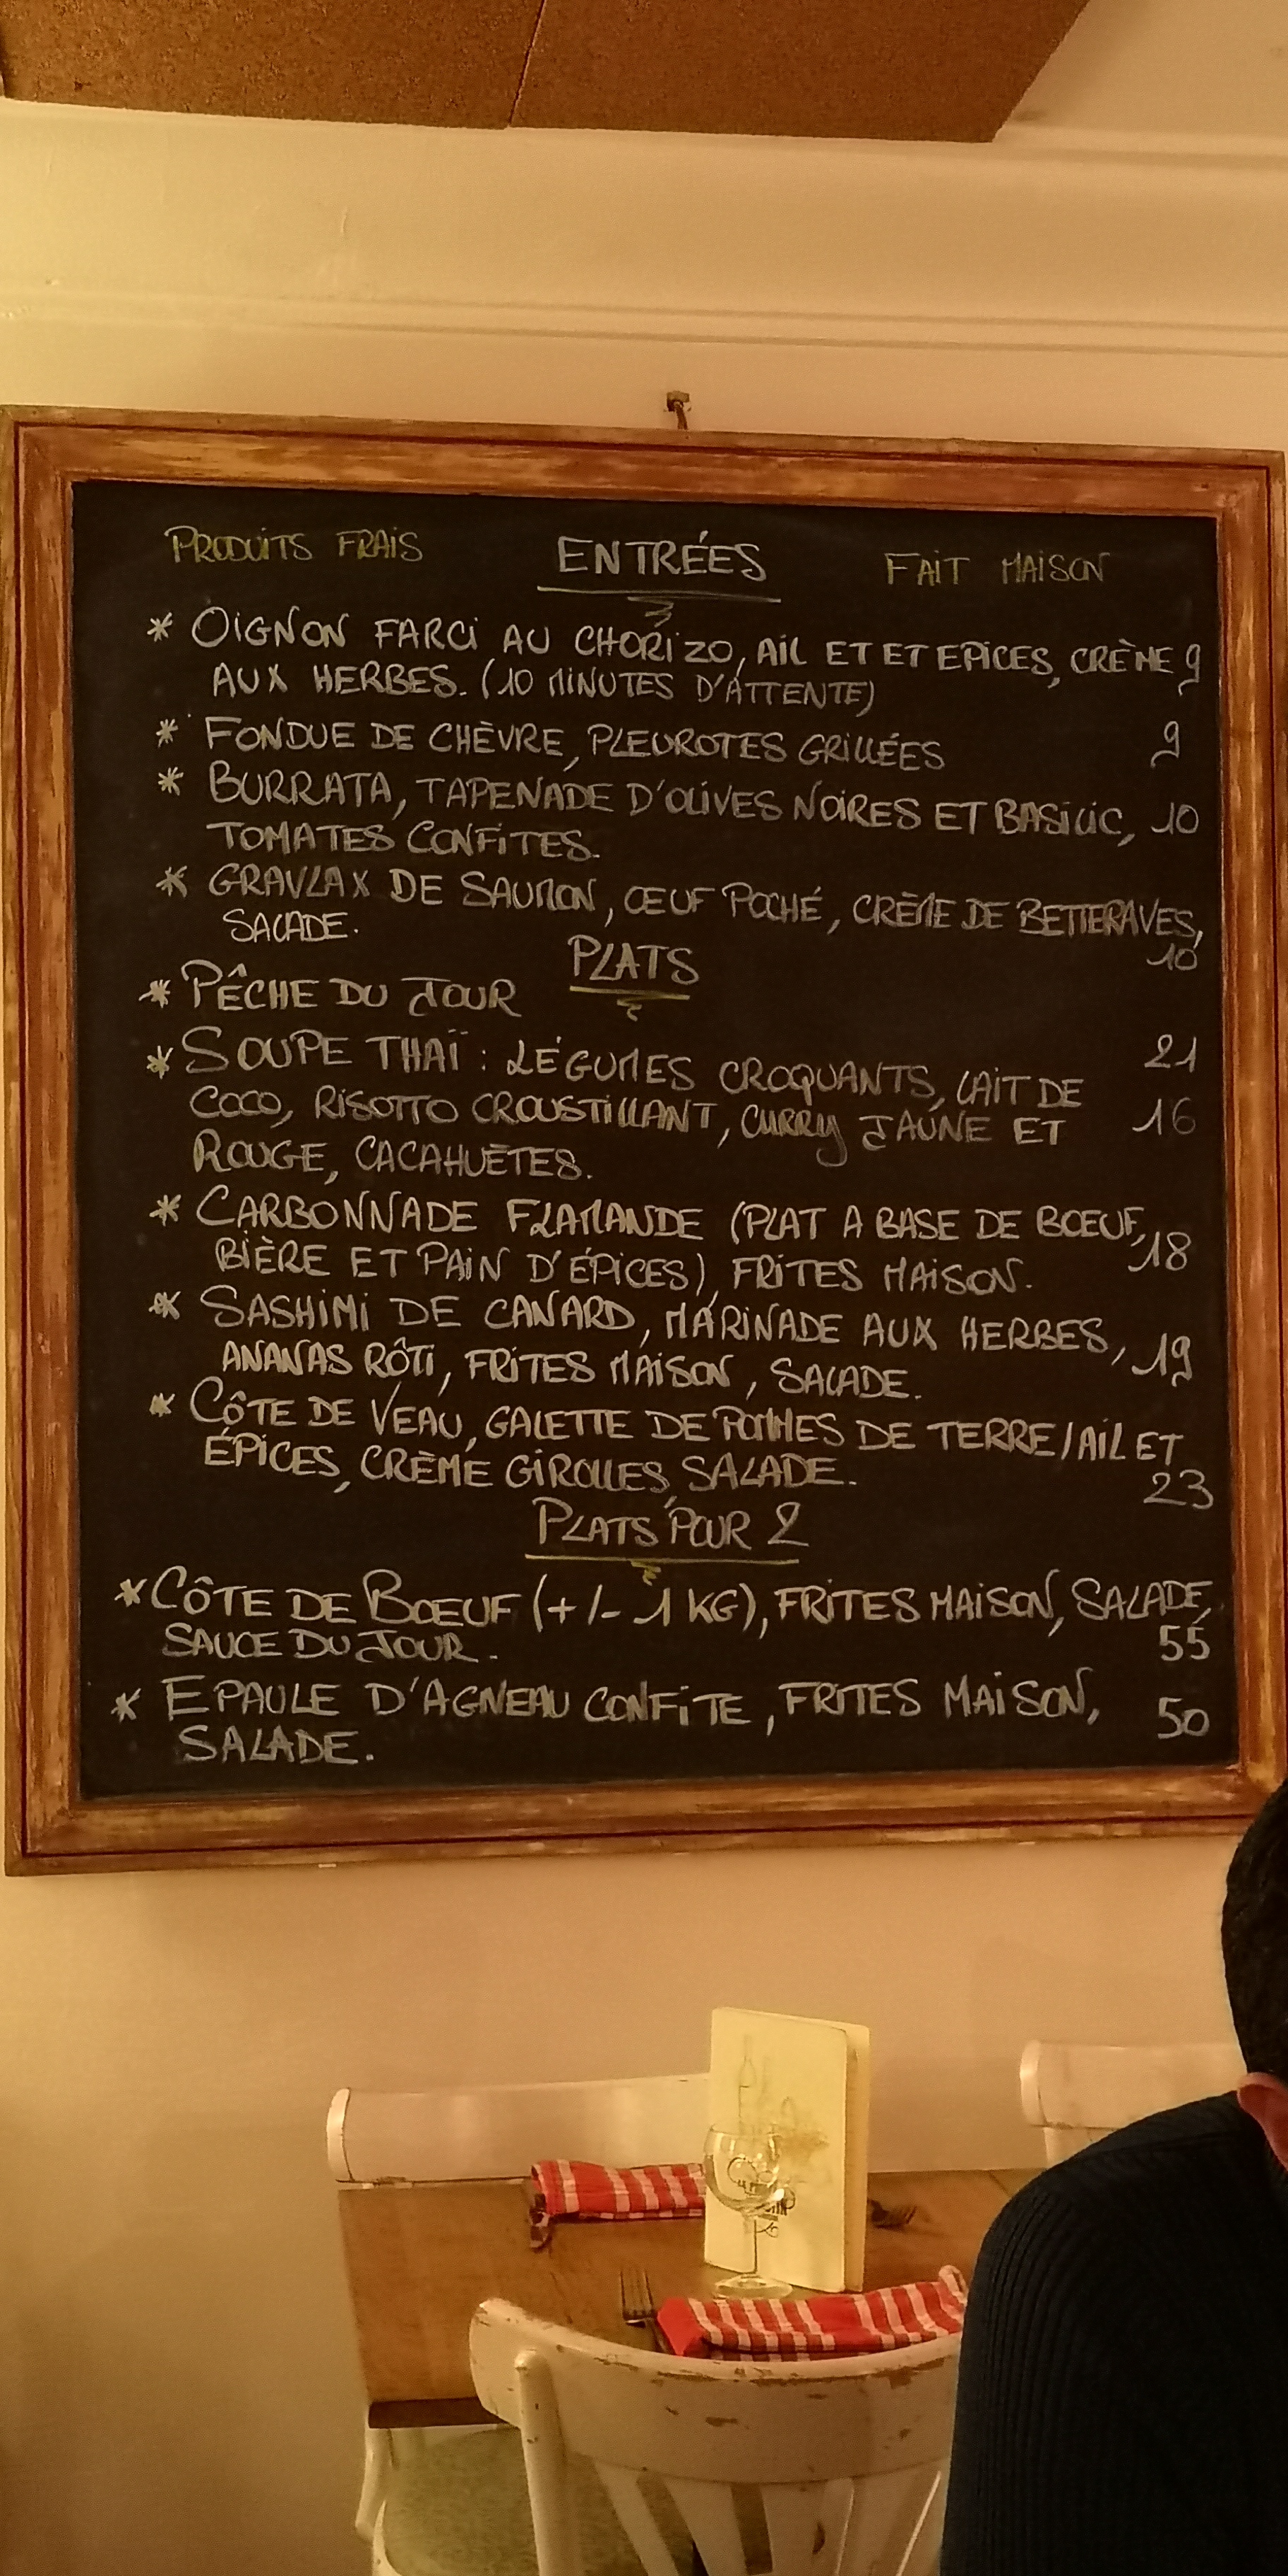 PRODUITS FRAIS ENTRÉES FAIT MAISON
* OIGNON FARCI AU CHORIZO, AIL ET ET EPICES, CRÈME 9
AUX HERBES. (10 MINUTES D'ATTENTE)
* FONDUE DE CHÈVRE, PLEUROTES GRILLÉES 9
* BURRATA, TAPENADE D'OLIVES NOIRES ET BASILIC, 10
TOMATES CONFITES.
* GRAVLAX DE SAUMON, ŒUF POCHÉ, CRÈME DE BETTERAVES,
SALADE. 10
PLATS
* PÊCHE DU JOUR 21
* SOUPE THAÏ : LÉGUMES CROQUANTS, LAIT DE
COCO, RISOTTO CROUSTILLANT, CURRY JAUNE ET 16
ROUGE, CACAHUÈTES.
* CARBONNADE FLAMANDE (PLAT A BASE DE BŒUF, 18
BIÈRE ET PAIN D'ÉPICES), FRITES MAISON.
* SASHIMI DE CANARD, MARINADE AUX HERBES, 19
ANANAS RÔTI, FRITES MAISON, SALADE.
* CÔTE DE VEAU, GALETTE DE POMMES DE TERRE/AIL ET
ÉPICES, CRÈME GIROLLES, SALADE. 23
PLATS POUR 2
* CÔTE DE BŒUF (+/- 1 KG), FRITES MAISON, SALADE,
SAUCE DU JOUR. 55
* EPAULE D'AGNEAU CONFITE, FRITES MAISON, 50
SALADE.